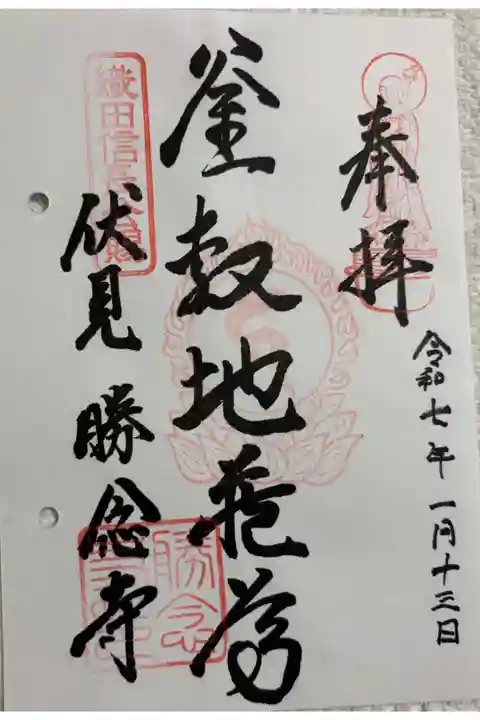 奉拝
令和七年一月十三日
釜敷地蔵尊
織田信長公賜
伏見 勝念寺